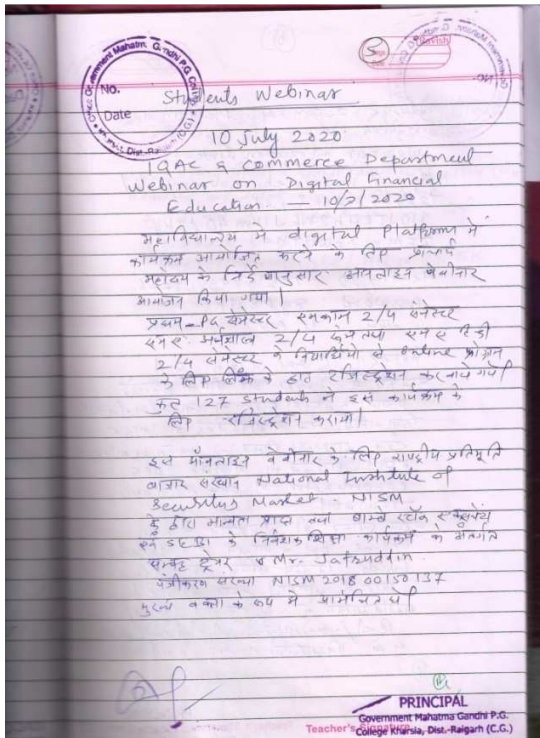 Government Mahatma Gandhi P.G. College
No.
Date
Students Webinar
10 July 2020
IQAC & Commerce Department
Webinar on Digital Financial
Education — 10/7/2020
महाविद्यालय में digital Platform में
कार्यक्रम आयोजित करने के लिए प्राचार्य
महोदय के निर्देशानुसार ऑनलाइन वेबीनार
आयोजन किया गया।
प्रथम PG सेमेस्टर एमकॉम 2/4 सेमेस्टर
एमए अर्थशास्त्र 2/4 सेम तथा एमए हिन्दी
2/4 सेमेस्टर के विद्यार्थियों से online प्रोग्राम
के लिए लिंक के द्वारा रजिस्ट्रेशन करवाये गये।
कुल 127 students ने इस कार्यक्रम के
लिए रजिस्ट्रेशन कराया।
इस ऑनलाइन वेबीनार के लिए राष्ट्रीय प्रतिभूति
बाजार संस्थान National Institute of
Securities Market - NISM
के द्वारा मान्यता प्राप्त तथा बाम्बे स्टॉक एक्सचेंज
के निवेशक शिक्षा कार्यक्रमों के अंतर्गत
ट्रेनर Mr. Jafruddin
पंजीकरण संख्या NISM 201800150137
मुख्य वक्ता के रूप में आमंत्रित थे।
PRINCIPAL
Government Mahatma Gandhi P.G.
College Kharsia, Dist.-Raigarh (C.G.)
Teacher's Signature